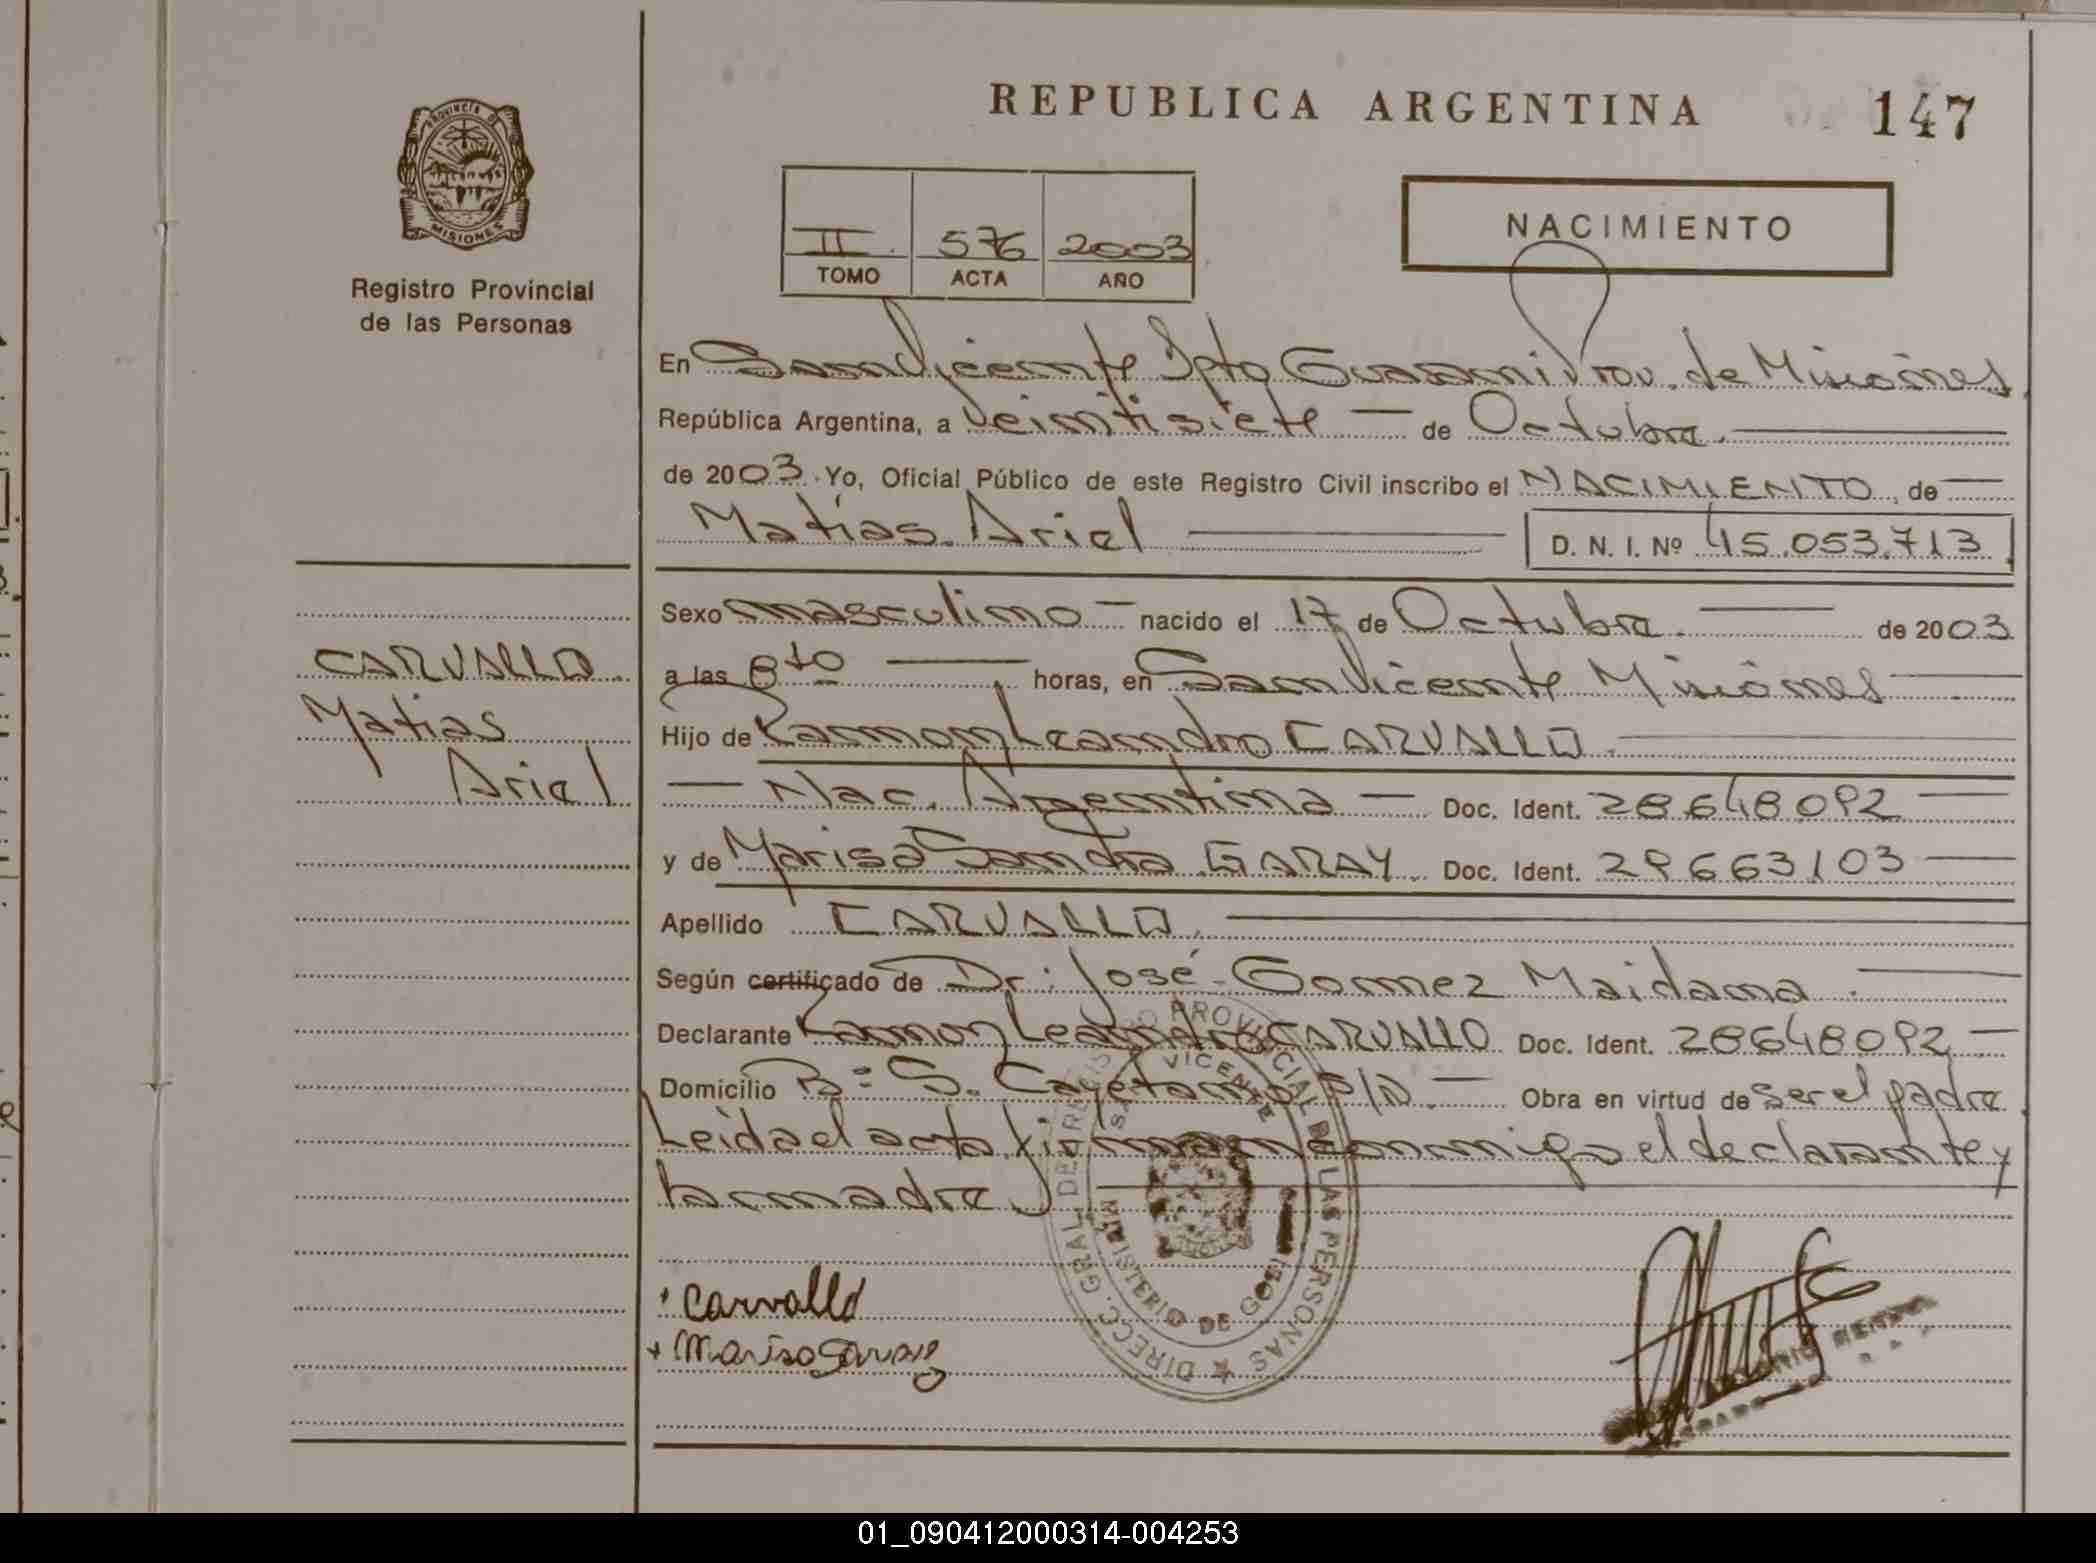 REPUBLICA ARGENTINA
147
PROVINCIA DE
MISIONES
Registro Provincial
de las Personas
II 576 2003
TOMO ACTA AÑO
NACIMIENTO
En San Vicente Dpto Guarani Prov. de Misiones
República Argentina, a veintisiete — de Octubre.
de 2003. Yo, Oficial Público de este Registro Civil inscribo el NACIMIENTO, de
Matias Ariel D. N. I. Nº 45.053.713
Sexo masculino — nacido el 17 de Octubre. de 2003
CARVALLO
Matias
Ariel
a las 8 horas, en San Vicente Misiones
Hijo de Ramon Leandro CARVALLO
— Nac. Argentina — Doc. Ident. 28648092
y de Marisa Sandra GARAY. Doc. Ident. 29663103
Apellido CARVALLO.
Según certificado de Dr: José Gomez Maidana.
Declarante Ramon Leandro CARVALLO Doc. Ident. 28648092 —
Domicilio B: S. Cayetano S/D. — Obra en virtud de ser el padre
Leida el acta firman conmigo el declarante y
la madre
Carvallo
Marisa Garay
DIRECC. GRAL. DE REGISTRO PROVINCIAL DE LAS PERSONAS
SAN VICENTE
MINISTERIO DE GOB
01_090412000314-004253